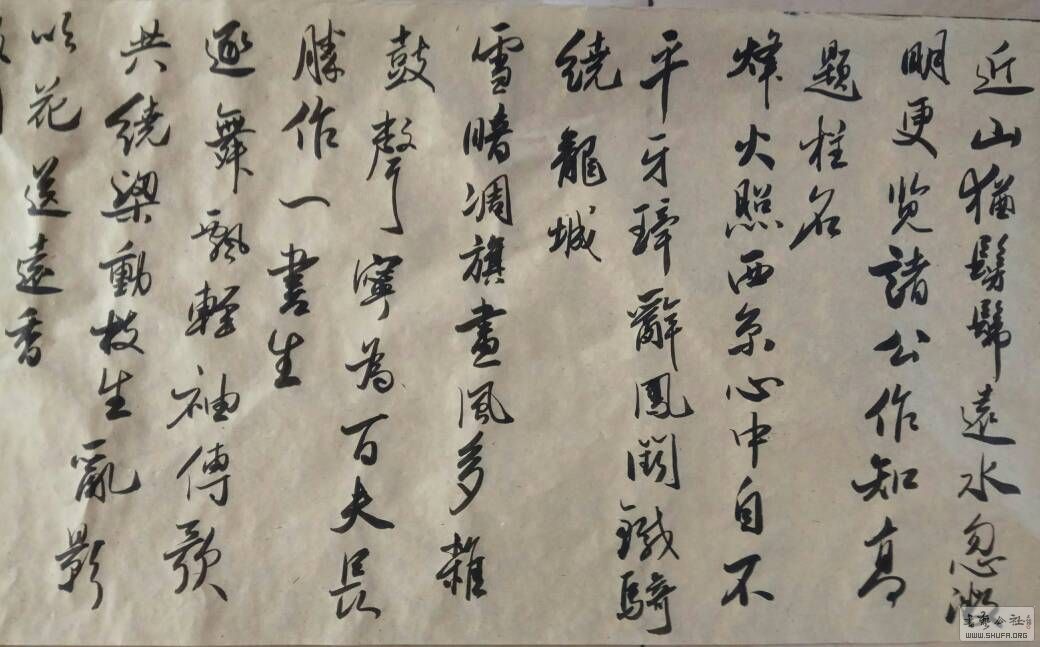 近山猶髣髴遠水忽微
明更览諸公作知高
題柱名
烽火照西京心中自不
平牙璋辭鳳闕鐵騎
繞龍城
雪暗凋旗畫風多雜
鼓聲寧為百夫長
勝作一書生
逐舞飄輕袖傳歌
共繞梁動枝生亂影
吹花送遠香
書藝公社
WWW.SHUFA.ORG